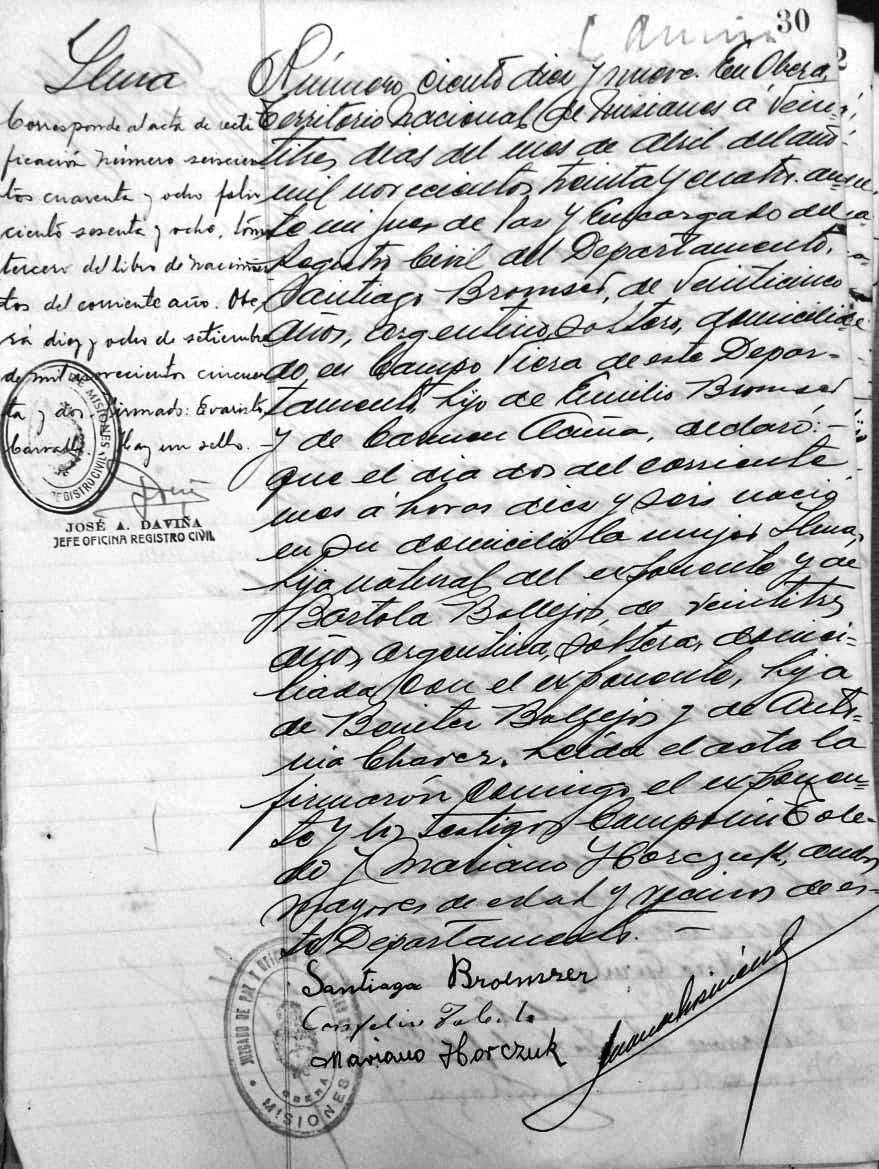 30
Ilma
Corresponde al acta de recti
ficación número seiscien
tos cuarenta y ocho folio
ciento sesenta y ocho, tomo
tercero del libro de nacimien
tos del corriente año. Obe
rá diez y ocho de setiembre
de mil novecientos cincuen
ta y dos firmado: Evaristo
Carvallo. Hay un sello.
DE MISIONES
REGISTRO CIVIL
JOSÉ A. DAVIÑA
JEFE OFICINA REGISTRO CIVIL
Número ciento diez y nueve. En Obera,
Territorio Nacional de Misiones á Vein-
titres dias del mes de Abril del año
mil novecientos treinta y cuatro. an-
te mi Juez de Paz y Encargado del
Registro Civil del Departamento,
Santiago Bromser, de Veinticinco
años, argentino, soltero, domicilia
do en Campo Viera de este Depar-
tamento, hijo de Emilio Bromser
y de Carmen Acuña, declaró:-
que el dia dos del corriente
mes á horas diez y seis nació
en su domicilio la mujer Ilma,
hija natural del exponente y de
Bartola Ballejos, de veintitres
años, argentina, soltera, domici-
liada con el exponente, hija
de Benitez Ballejos y de Anto-
nia Chavez. Leida el acta la
firmarón conmigo el exponen-
te y los testigos Campolin Tole-
do y Mariano Horczuk, ambos
mayores de edad y vecinos de es-
te Departamento. -
Santiago Broemser
Mariano Horczuk
JUZGADO DE PAZ Y
OBERA
MISIONES